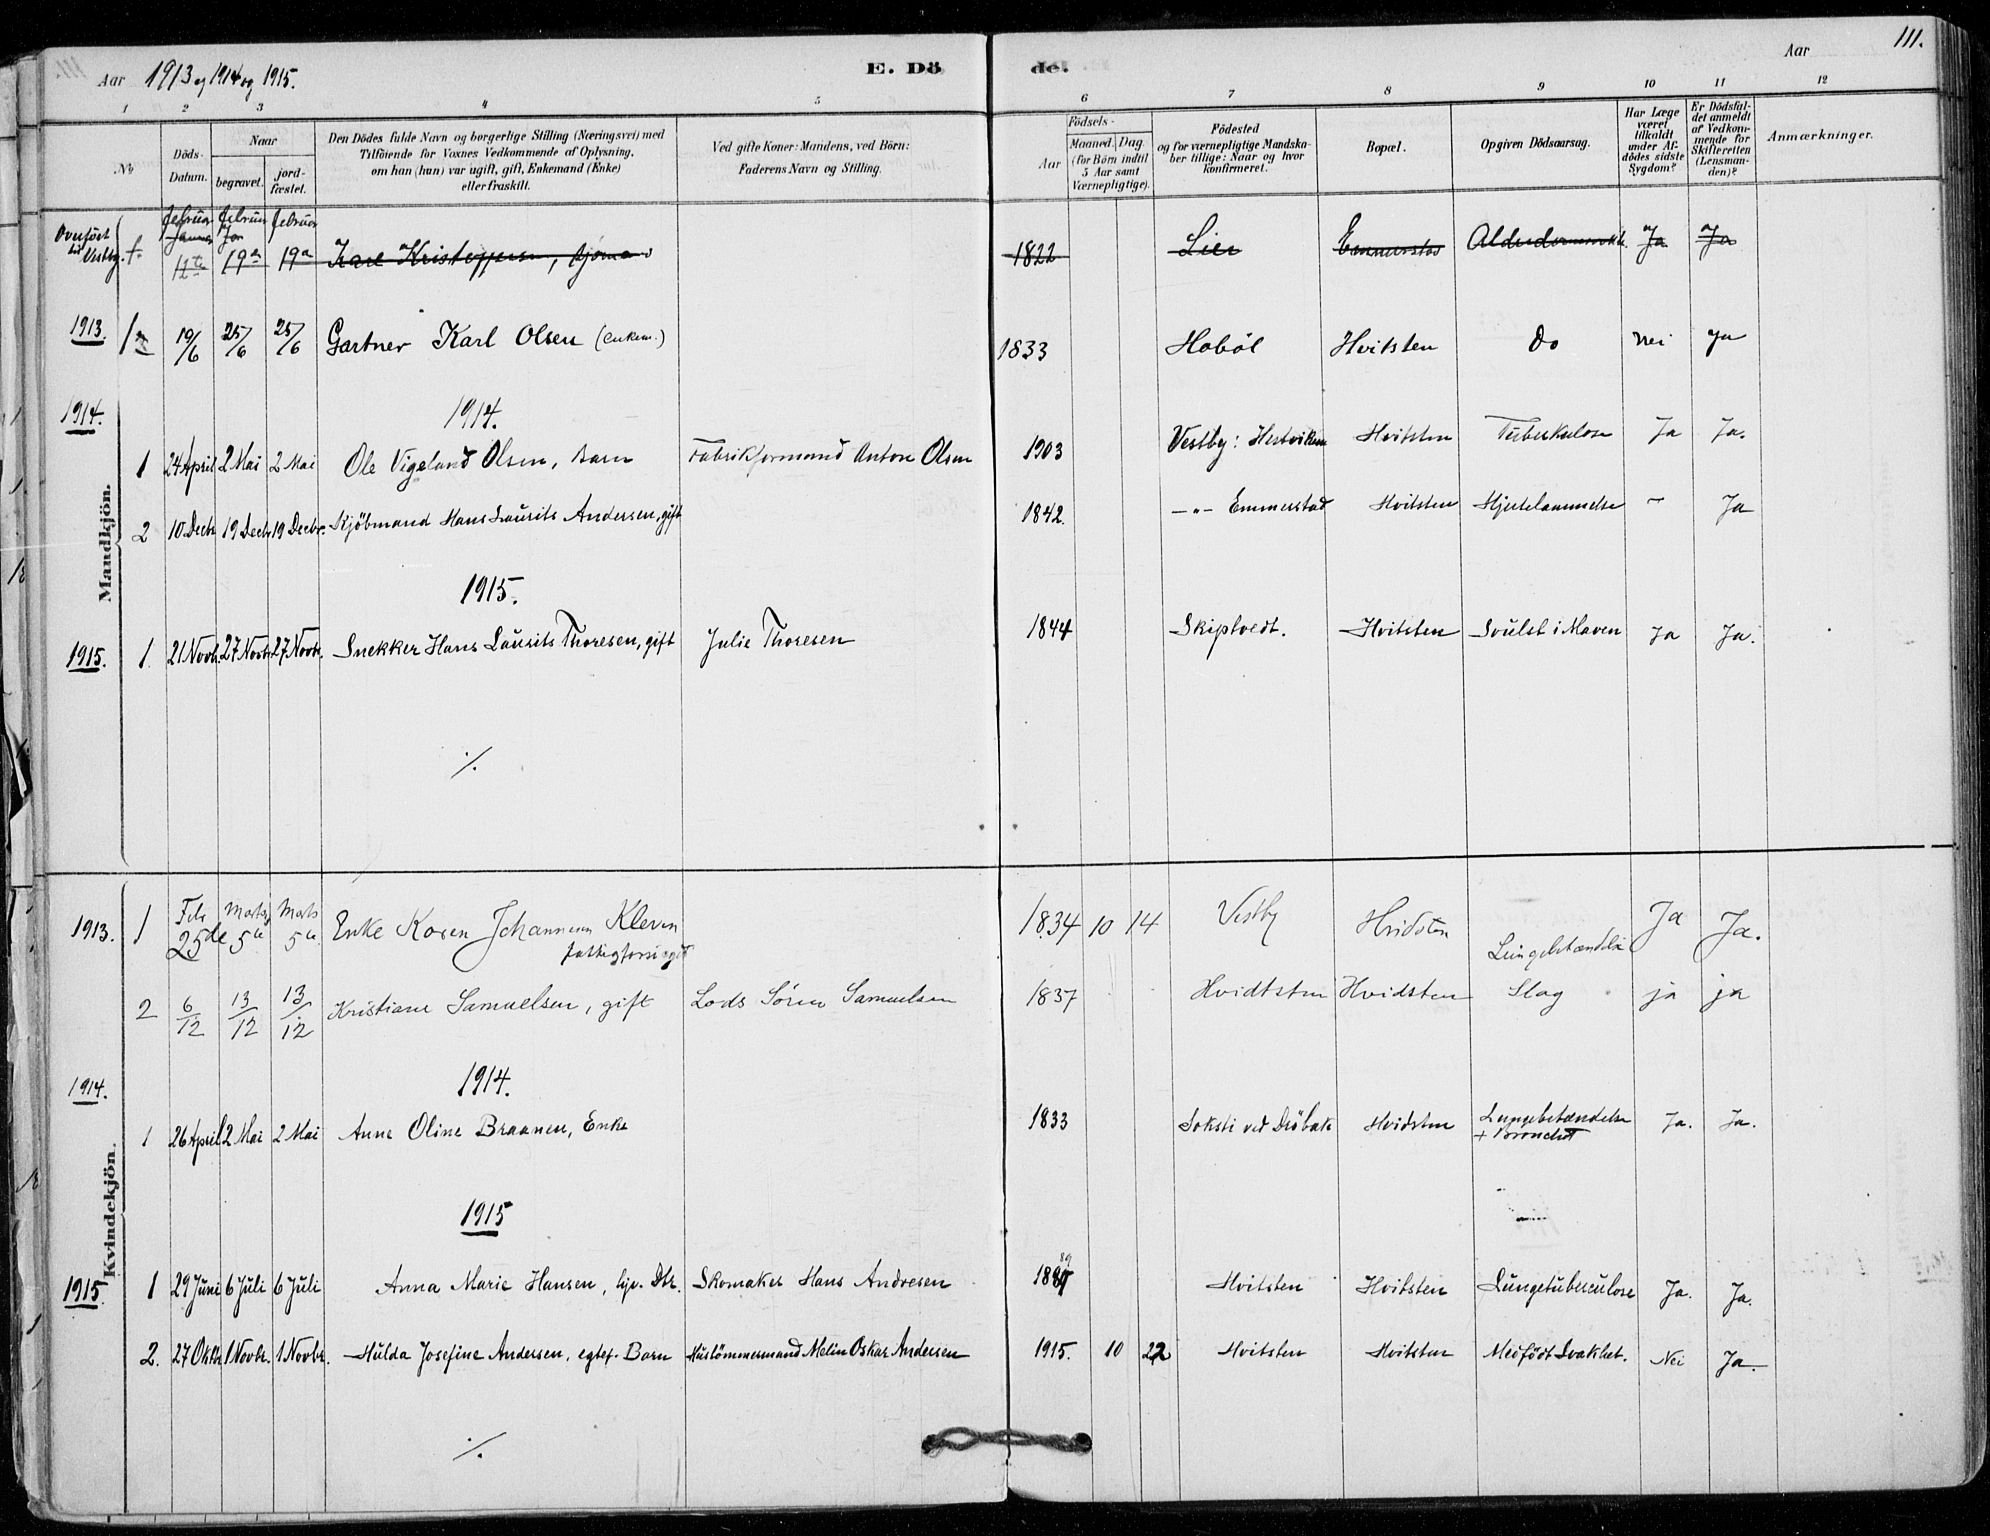 111.
Aar 1913 og 1914 og 1915.
E. Dö de.
Aar
1 2 3 4 5 6 7 8 9 10 11 12
No
Döds-Datum.
Naar
begravet.
jord-fæstet.
Den Dödes fulde Navn og borgerlige Stilling (Næringsvei) med
Tilföiende for Voxnes Vedkommende af Oplysning,
om han (hun) var ugift, gift, Enkemand (Enke)
eller fraskilt.
Ved gifte Koner: Mandens, ved Börn:
Faderens Navn og Stilling.
Födsels-
Aar
Maaned. Dag.
(for Börn indtil
5 Aar samt
Værnepligtige).
Födested
og for værnepligtige Mandska-
ber tillige: Naar og hvor
konfirmeret.
Bopæl.
Opgiven Dödsaarsag.
Har Læge
været
tilkaldt
under Af-
dödes sidste
Sygdom?
Er Dödsfal-
det anmeldt
af Vedkom-
mende for
Skifteretten
(Lensman-
den)?
Anmærkninger.
Mandkjön.
Overført til Vestby. Februar Januar 12te Februar Jan 19de Februar 19de Karl Kristoffersen, 1822 Lier Emmerstad Ja Ja
1913. 1 19/6 25/6 25/6 Gartner Karl Olsen (enkem.) 1833 Hobøl Hvitsten Do nei ja
1914.
1914.
1 24 April 2 Mai 2 Mai Ole Vigeland Olsen, Barn Fabrikformand Anton Olsen 1903 Vestby: Hestviken Hvitsten Tuberkulose Ja Ja.
2 10 Decbr 19 Decbr 19 Decbr. Kjöbmand Hans Laurits Andersen, gift 1842. -"- Emmerstad Hvitsten Hjertelammelse - Ja
1915.
1915. 1. 21 Novbr. 27 Novbr. 27 Novbr. Snekker Hans Laurits Thoresen, gift Julie Thoresen 1844 Skiptvedt. Hvitsten Svulst i Maven Ja Ja.
./.
Kvindekjön.
1913. 1 Feb 25de Marts 5te Marts 5te Enke Karen Johannesen Kleven 1834 10 14 Vestby Hvidsten Lungebetændelse Ja Ja.
2 6/12 13/12 13/12 Kristiane Samuelsen, gift Lods Sören Samuelsen 1837 Hvidtsten Hvidsten Slag ja ja
1914.
1914.
1 26 April 2 Mai 2 Mai Anne Oline Braanen, Enke 1833 Soksti ved Dröbak Hvidsten Lungebetændelse + Bronchit Ja. Ja.
1915
1915. 1 29 Juni 6 Juli 6 Juli Anna Marie Hansen, hjv. Dtr. Skomaker Hans Andresen 89 Hvitsten Hvitsten Lungetuberculose Ja. Ja.
2. 27 Oktbr 1 Novbr. 1 Novbr. Hulda Josefine Andersen, egtef. Barn Hustömmermand Melin Oskar Andersen 1915. 10 22 Hvitsten Hvitsten Medfödt Svakhet. Nei Ja.
./.